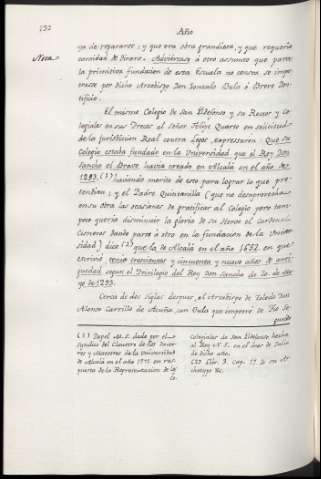 132
Año
va de repararse: y que era obra grandiosa, y que requería
Nota. cantidad de dinero. Advirtiendo a otro assunto que para
la primitiva fundacion de esta Escuela no consta se impe-
trasse por dicho Arzobispo Don Gonzalo Bula ó Breve Pon-
tificio.
El mismo Colegio de San Ildefonso y su Rector y Co-
legiales en sus Preces al Señor Felipe Quarto en solicitud
de la jurisdiccion Real contra Legos expressaron: Que su
Colegio estaba fundado en la Universidad que el Rey Don
Sancho el Bravo havia creado en Alcalá en el año de
1293. (1) haciendo merito de esto para lograr lo que pre-
tendian; y el Padre Quintanilla (que no desaprovecha
en su obra las ocasiones de gratificar al Colegio, pero tam-
poco queria disminuir la gloria de su Heroe el Cardenal
Cisneros dando parte á otro en la fundacion de la Univer-
sidad) dice (2) que la de Alcalá en el año 1652. en que
escrivió tenia trescientos y cinquenta y nueve años de anti-
guedad segun el Privilegio del Rey Don Sancho de 20. de Ma-
yo de 1293.
Cerca de dos siglos despues, el Arzobispo de Toledo Don
Alonso Carrillo de Acuña, con Bula que impetró de Pio Se-
gundo
(1) Papel M.S. dado por el
Syndico del Claustro de los Docto-
res y Maestros de la Universidad
de Alcalá en el año en res-
puesta de la Representacion de los
Colegiales de San Ildefonso, hecha
al Rey N.S. en el mes de Julio
de dicho año.
(2) Libr. 3. Cap. 17. de su Ar-
chetypo &c.